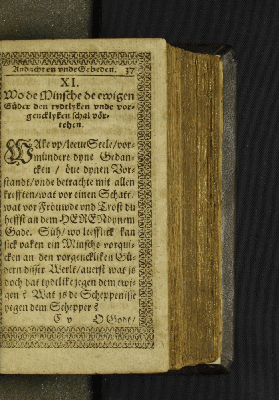 Andacht en vnde Gebeden. 37
XI.
Wo de Minsche de ewigen
Güder den tydtlyken vnde vor-
gencklyken schal vör-
tehen.
WAke vp/leeue Seele/vor-
mündere dyne Gedan-
cken / öue dynen Vor-
standt/vnde betrachte mit allen
krefften/wat vor einen Schatt/
wat vor Fröuwde vnd Trost du
heffst an dem HEREN dynem
Gade. Süh/wo leefflick kan
sick vaken ein Minsche vorqui-
cken an den vorgencklicken Gü-
dern disser Werlt/auerst wat is
doch dat tydtlike jegen dem ewi-
gen? Wat is de Scheppenisse
yegen dem Schepper?
E v O Godt/